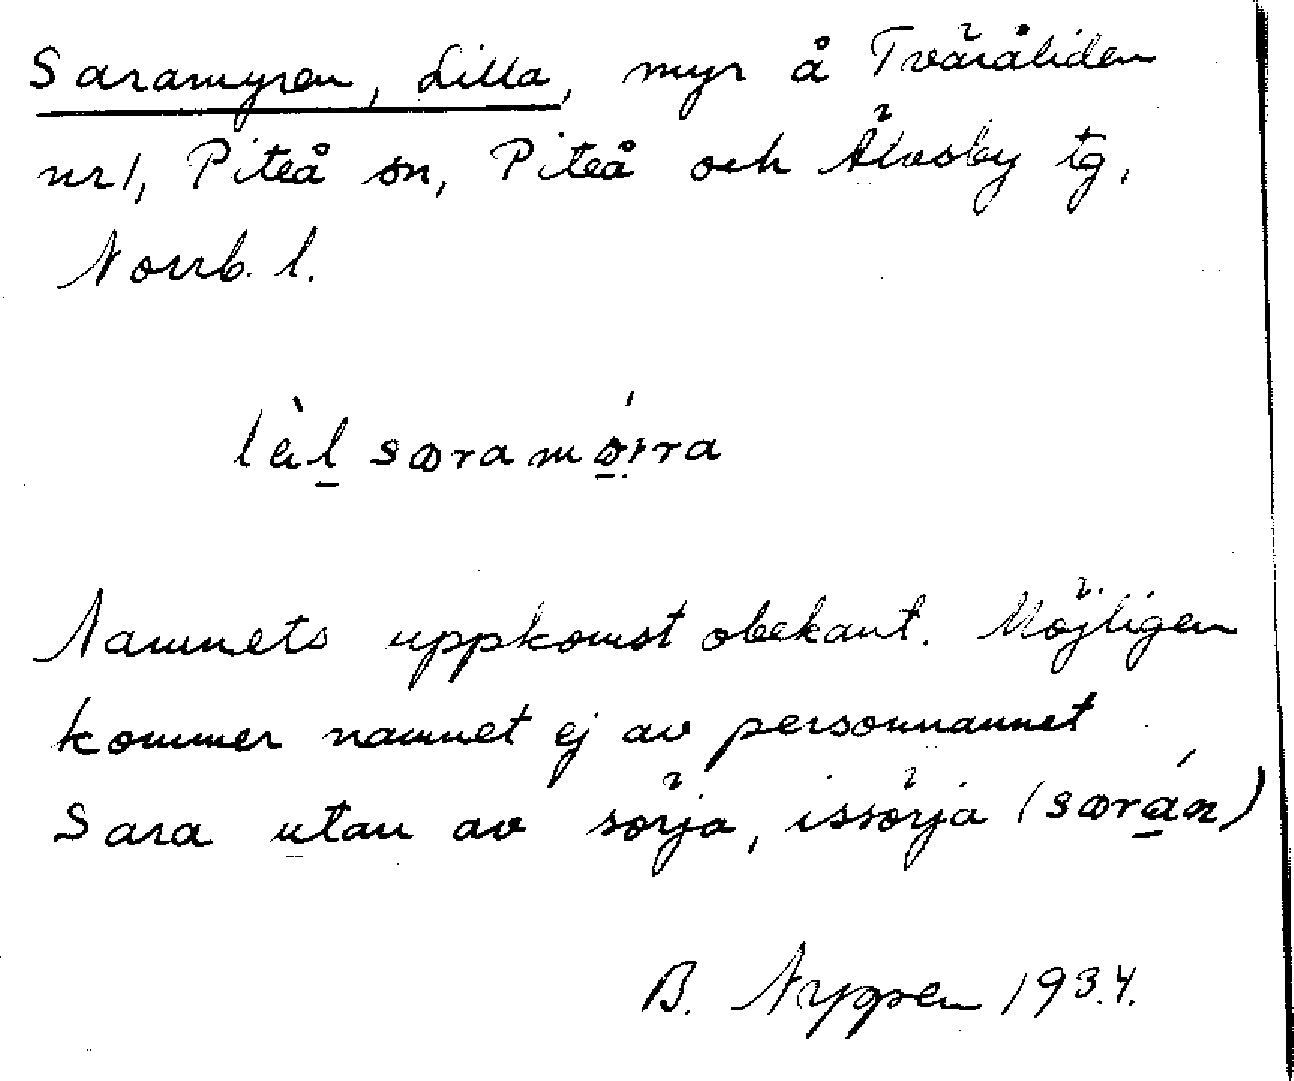 Saramyren, Lilla, myr å Tväråliden
nr 1, Piteå sn, Piteå och Älvsby tg,
Norrb. l.
Namnets uppkomst obekant. Möjligen
kommer namnet ej av personnamnet
Sara utan av sörja, issörja (særán)
B. Nygren 1934.